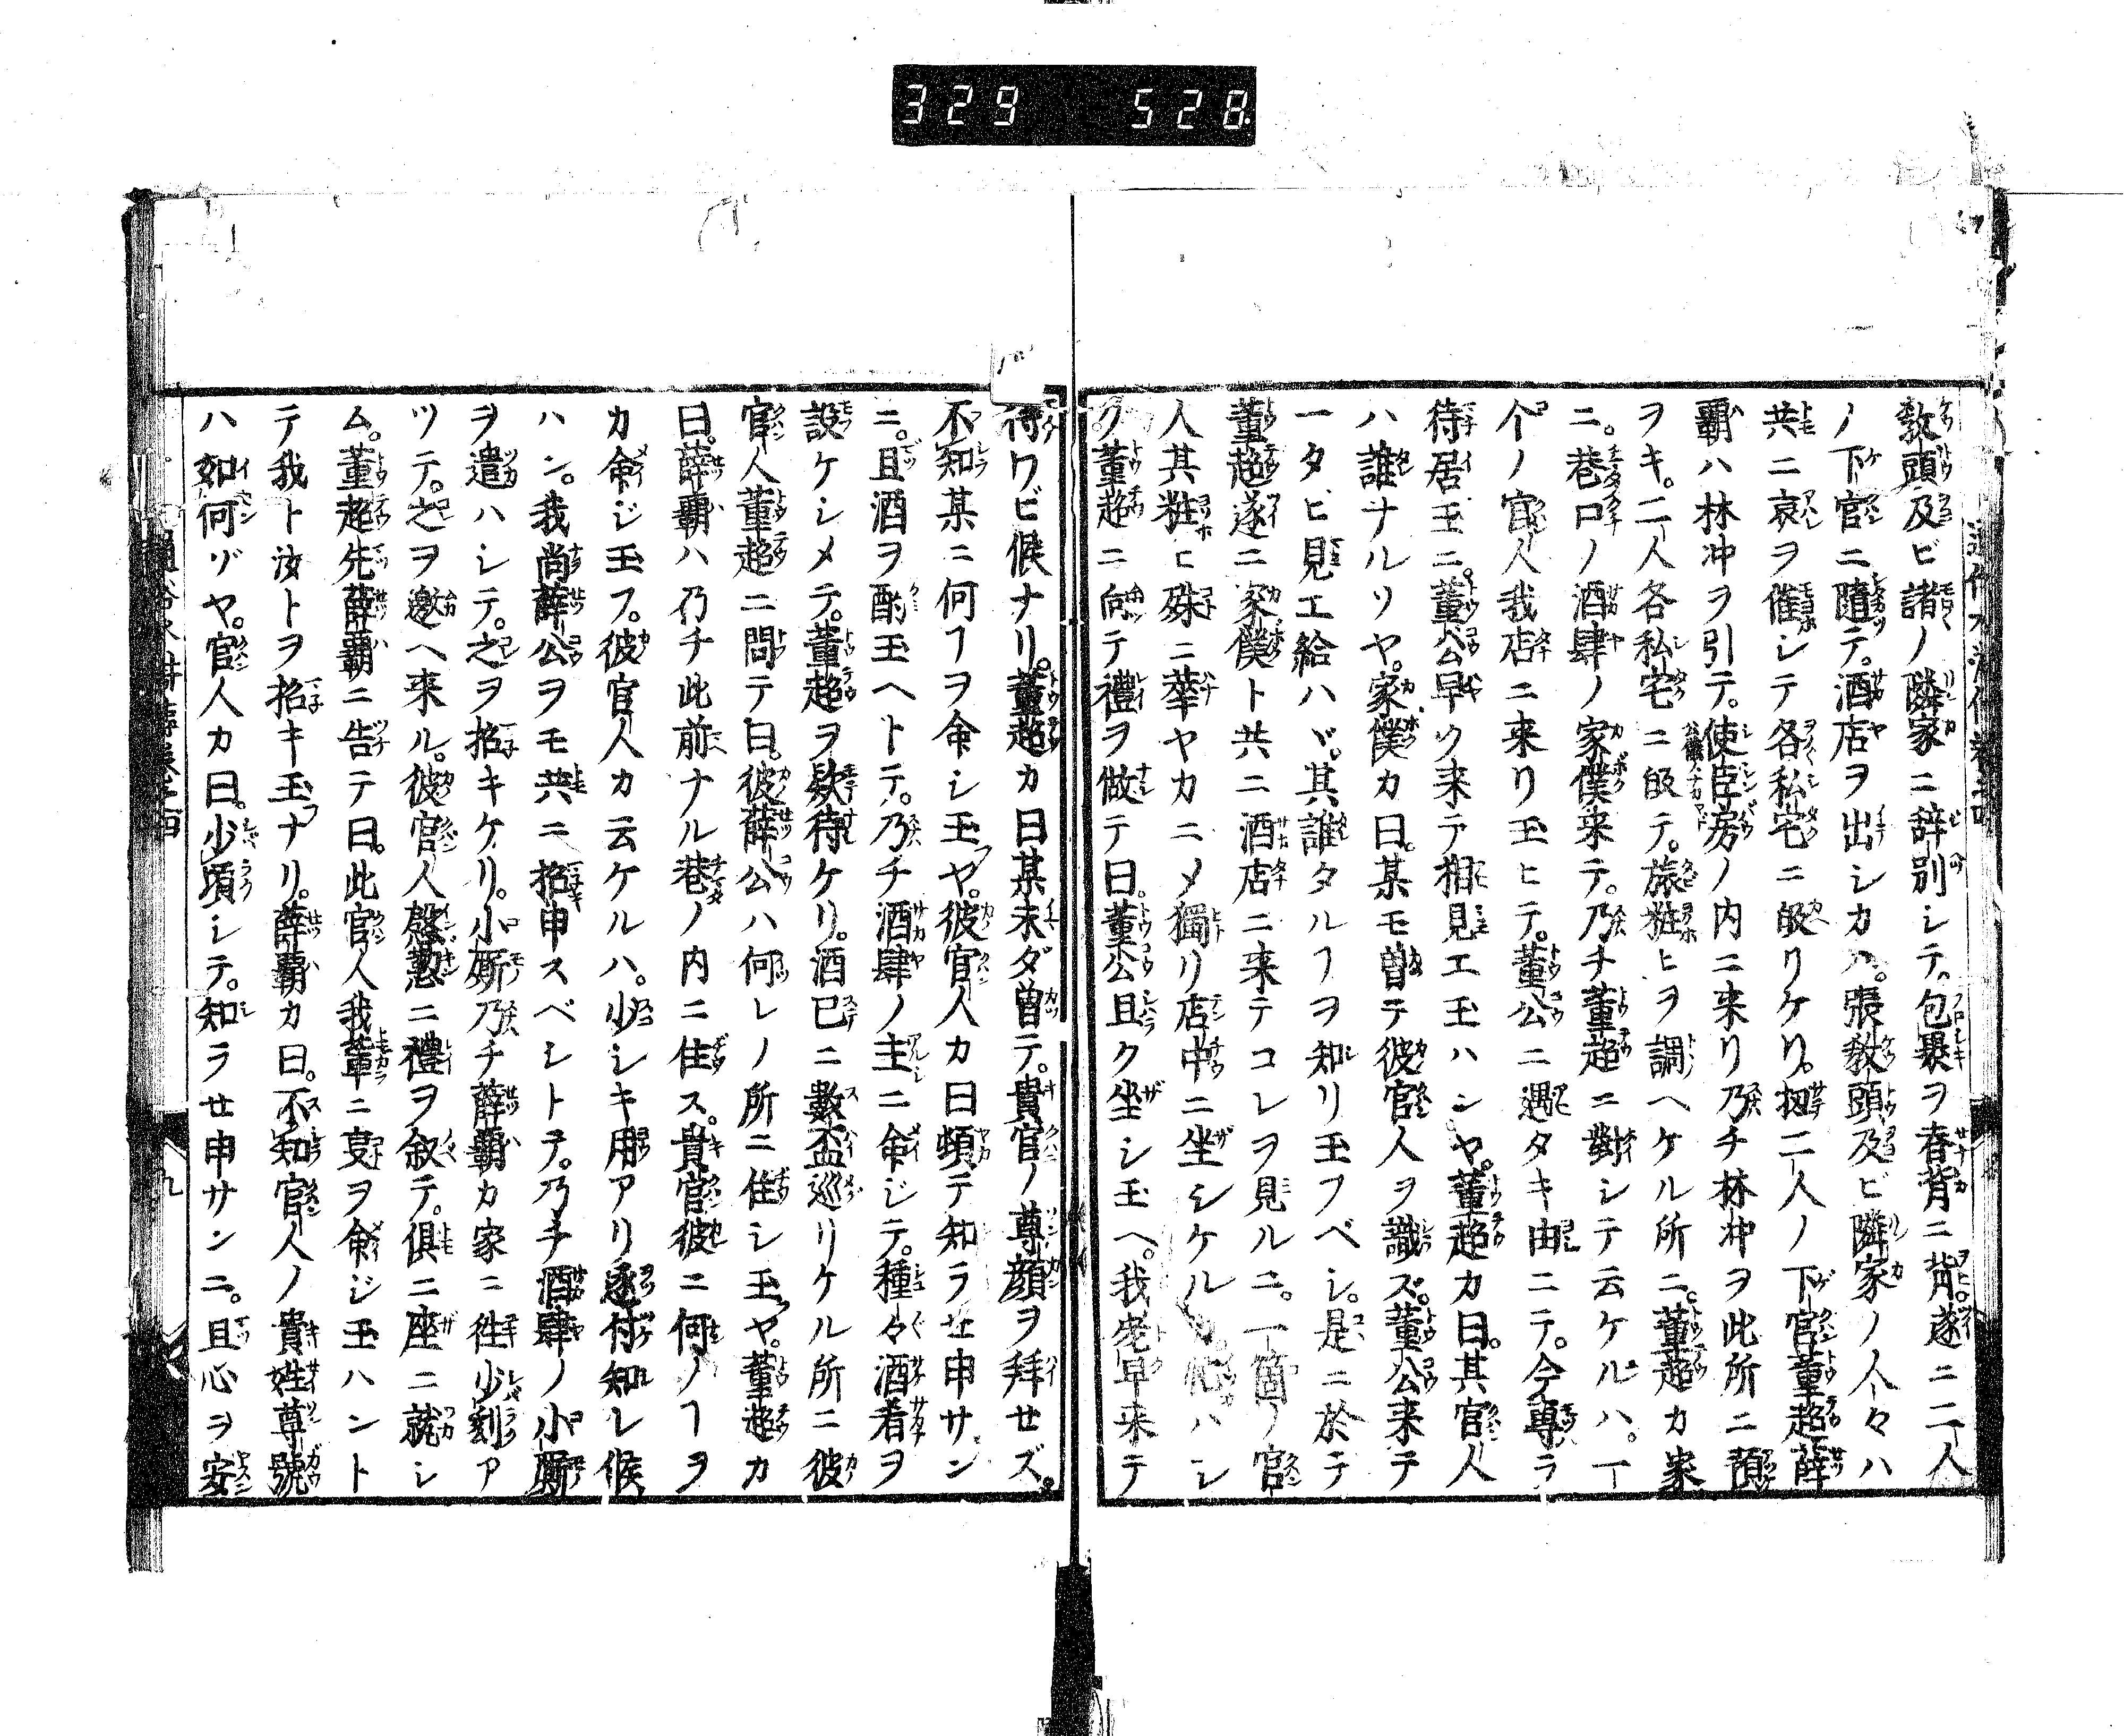 329 528
教頭及ビ諸ノ隣家ニ辞別シテ。包裹ヲ脊背ニ背。遂ニ二人
ノ下官ニ隨テ。酒店ヲ出シカハ。張教頭及ビ隣家ノ人々ハ
共ニ哀ヲ催シテ各私宅ニ皈リケリ。扨二人ノ下官董超薛
覇ハ林冲ヲ引テ。使臣房ノ内ニ来リ乃チ林冲ヲ此所ニ預
ヲキ。二人各私宅ニ皈テ。旅粧ヒヲ調ヘケル所ニ。董超カ家
ニ。巷口ノ酒肆ノ家僕来テ。乃チ董超ニ對シテ云ケルハ。一
个ノ官人我店ニ来リ玉ヒテ。董公ニ遇タキ由ニテ。今專ラ
待居玉ニ。董公早ク来テ相見エ玉ハンヤ。董超カ曰。其官人
ハ誰ナルソヤ。家僕カ曰。某モ曽テ彼官人ヲ識ズ。董公来テ
一タヒ見エ給ハヾ。其誰タルヿヲ知リ玉フベシ。是ニ於テ
董超遂ニ家僕ト共ニ酒店ニ来テコレヲ見ルニ。一箇ノ官
人其粧ヒ殊ニ華ヤカニメ獨リ店中ニ坐シケル ハシ
ク董超ニ向テ禮ヲ做テ曰。董公且ク坐シ玉ヘ。我 早来テ
待ワビ候ナリ。董超カ曰某未ダ曽テ。貴官ノ尊顔ヲ拜セズ。
不知某ニ何ヿヲ命シ玉ヤ。彼官人カ曰頓テ知ラセ申サン
ニ。且酒ヲ酌玉ヘトテ。乃チ酒肆ノ主ニ命ジテ。種々酒肴ヲ
設ケシメテ。董超ヲ欵待ケリ。酒已ニ數盃巡リケル所ニ彼
官人董超ニ問テ曰。彼薛公ハ何レノ所ニ住シ玉ヤ。董超カ
曰。薛覇ハ乃チ此前ナル巷ノ内ニ住ス。貴官彼ニ何ノヿヲ
カ命ジ玉フ。彼官人カ云ケルハ。少シキ用アリ逐付知レ候
ハン。我尚薛公ヲモ共ニ招申スベシトテ。乃チ酒肆ノ小厮
ヲ遣ハシテ。之ヲ招キケリ。小厮乃チ薛覇カ家ニ徃少刻ア
ツテ。之ヲ邀ヘ来ル。彼官人慇懃ニ禮ヲ叙テ。俱ニ座ニ就シ
ム。董超先薛覇ニ告テ曰。此官人我輩ニ叓ヲ命ジ玉ハント
テ我ト汝トヲ招キ玉ナリ。薛覇カ曰。不知官人ノ貴姓尊號
ハ如何ゾヤ。官人カ曰。少頃シテ。知ラセ申サンニ。且心ヲ安